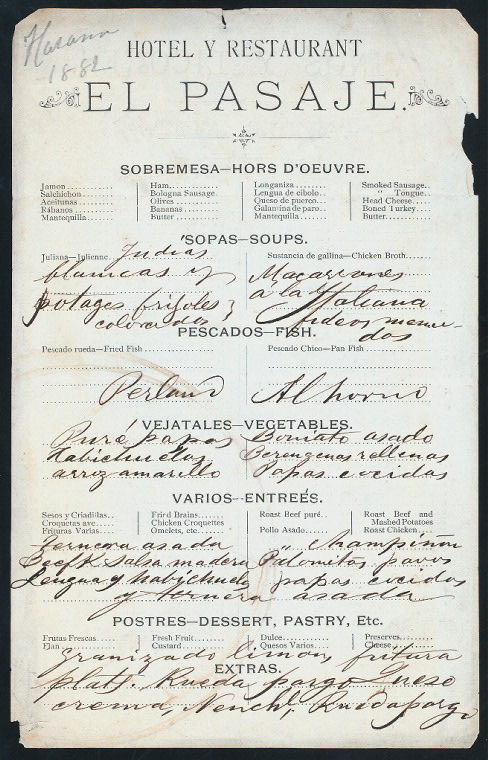 Havana
1882
HOTEL Y RESTAURANT
EL PASAJE.
SOBREMESA—HORS D'OEUVRE.
Jamon.......... Ham............ Longaniza......... Smoked Sausage..
Salchichon......... Bologna Sausage. Lengua de cibolo.. " Tongue..
Aceitunas......... Olives............ Queso de puerco... Head Cheese.....
Rábanos.......... Bananas......... Galantina de paro.. Boned Turkey....
Mantequilla...... Butter........... Mantequilla........ Butter..........
SOPAS—SOUPS.
Juliana—Julienne. Judias Sustancia de gallina—Chicken Broth......
blancas y Macarrones
potages frijoles á la Italiana
colorados fideos menudos
PESCADOS—FISH.
Pescado rueda—Fried Fish Pescado Chico—Pan Fish
Perland Al horno
VEJATALES—VEGETABLES.
Puré papas Boniato asado
Habichuelas Berengenas rellenas
arroz amarillo Papas cocidas
VARIOS—ENTREÉS.
Sesos y Criadilas.. Fried Brains....... Roast Beef puré.. Roast Beef and
Croquetas ave..... Chicken Croquettes Mashed Potatoes
Frituras Varias.... Omelets, etc....... Pollo Asado...... Roast Chicken...
Ternera asada " Champiñon
Beefk Salsa madera Palomitas pavos
Lengua y habichuela papas cocidas
y ternera asada
POSTRES—DESSERT, PASTRY, Etc.
Frutas Frescas..... Fresh Fruit....... Dulce............ Preserves........
Flan............... Custard.......... Quesos Varios.... Cheese..........
Granizado limon, fritura
EXTRAS.
plat. Rueda pargo Queso
crema, Rueda pargo